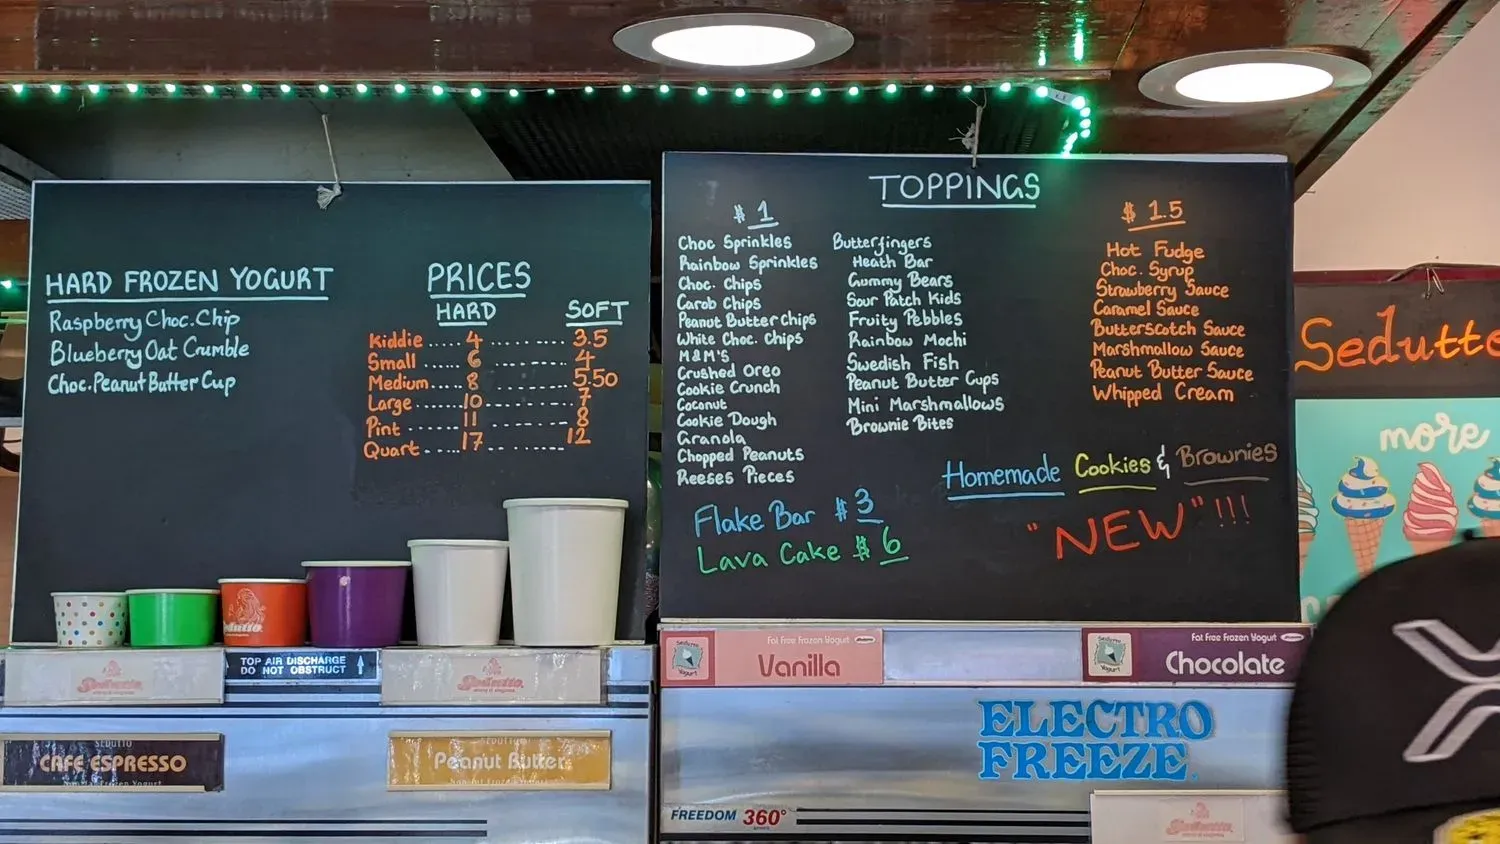 HARD FROZEN YOGURT
Raspberry Choc.Chip
Blueberry Oat Crumble
Choc.Peanut Butter Cup
PRICES
HARD SOFT
Kiddie ..... 4 ............. 3.5
Small ..... 6 ............. 4
Medium .... 8 ............. 5.50
Large ...... 10 ............. 7
Pint ....... 11 ............. 8
Quart .... 17 ............. 12
TOPPINGS
$ 1
Choc Sprinkles
Rainbow Sprinkles
Choc. Chips
Carob Chips
Peanut Butter Chips
White Choc. Chips
M&M'S
Crushed Oreo
Cookie Crunch
Coconut
Cookie Dough
Granola
Chopped Peanuts
Reeses Pieces
Butterfingers
Heath Bar
Gummy Bears
Sour Patch Kids
Fruity Pebbles
Rainbow Mochi
Swedish Fish
Peanut Butter Cups
Mini Marshmallows
Brownie Bites
$ 1.5
Hot Fudge
Choc. Syrup
Strawberry Sauce
Caramel Sauce
Butterscotch Sauce
Marshmallow Sauce
Peanut Butter Sauce
Whipped Cream
Flake Bar $ 3
Lava Cake $ 6
Homemade Cookies & Brownies
"NEW"!!!
Sedutto
more
Sedutto
TOP AIR DISCHARGE
DO NOT OBSTRUCT
Sedutto
Sedutto
SEDUTTO
CAFE ESPRESSO
Non-fat Frozen Yogurt
SEDUTTO
Peanut Butter
Non-fat Frozen Yogurt
Sedutto
Yogurt
Fat Free Frozen Yogurt
Vanilla
Sedutto
Yogurt
Fat Free Frozen Yogurt
Chocolate
ELECTRO
FREEZE
FREEDOM 360°
Sedutto